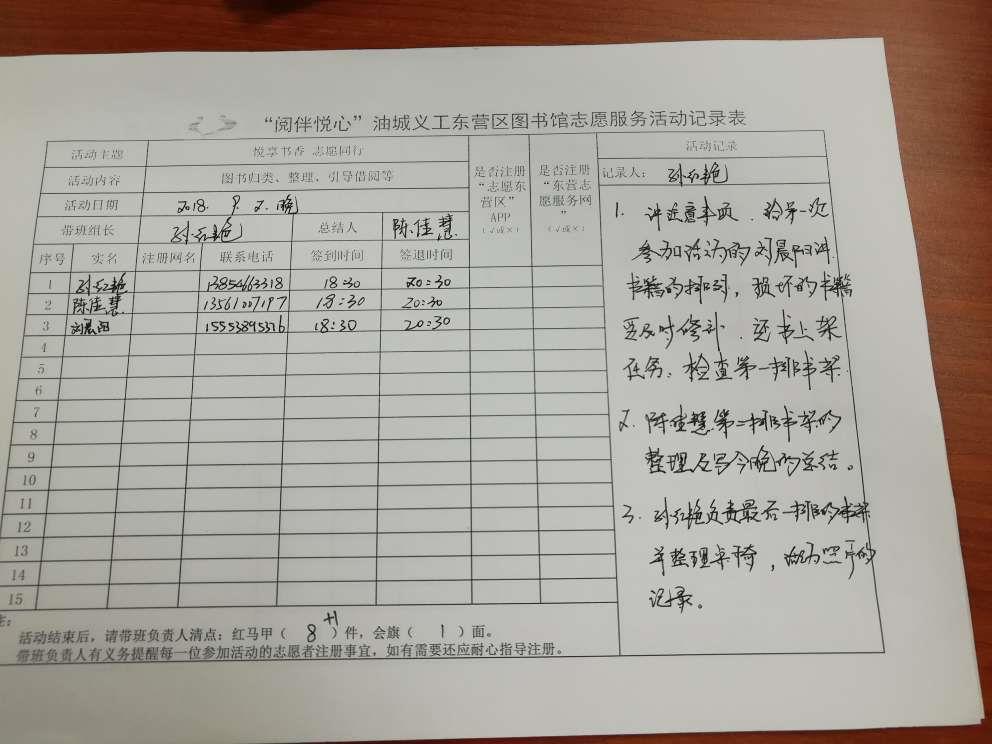 “阅伴悦心”油城义工东营区图书馆志愿服务活动记录表
活动主题 悦享书香 志愿同行
活动内容 图书归类、整理、引导借阅等
活动日期 2018. 9. 2. 晚
带班组长 孙红艳 总结人 陈佳慧
序号 实名 注册网名 联系电话 签到时间 签退时间
是否注册“志愿东营区”APP（√或×）
是否注册“东营志愿服务网”（√或×）
1 孙红艳 13854663318 18:30 20:30
2 陈佳慧 13561007197 18:30 20:30
3 刘晨阳 15553895316 18:30 20:30
4
5
6
7
8
9
10
11
12
13
14
15
活动记录
记录人： 孙红艳
1. 讲注意事项、给第一次
参加活动的刘晨阳讲
书籍的排列，损坏的书籍
要及时修补、还书上架
任务、检查第一排书架
2. 陈佳慧第二排书架的
整理及写今晚的总结。
3. 孙红艳负责最后一排的书架
并整理桌椅，做为照片的
记录。
注：
活动结束后，请带班负责人清点：红马甲（ 8+1 ）件，会旗（ 1 ）面。
带班负责人有义务提醒每一位参加活动的志愿者注册事宜，如有需要还应耐心指导注册。